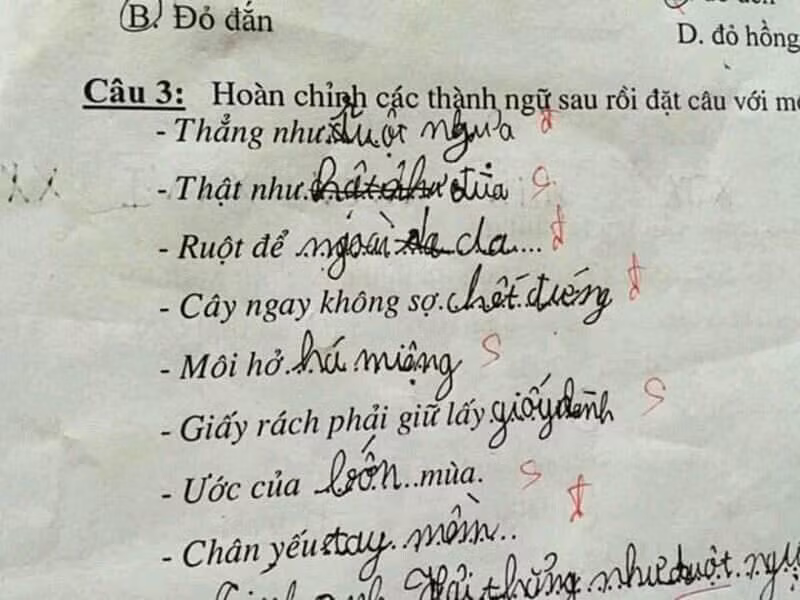 B. Đỏ đắn
D. đỏ hồng
Câu 3: Hoàn chỉnh các thành ngữ sau rồi đặt câu với
- Thẳng như ruột ngựa đ
- Thật như đùa s
- Ruột để ngoài da... đ
- Cây ngay không sợ chết đướng đ
- Môi hở há miệng s
- Giấy rách phải giữ lấy giấy dành s
- Ước của bốn mùa. s
- Chân yếu tay mồm.. đ
Hải thẳng như ruột